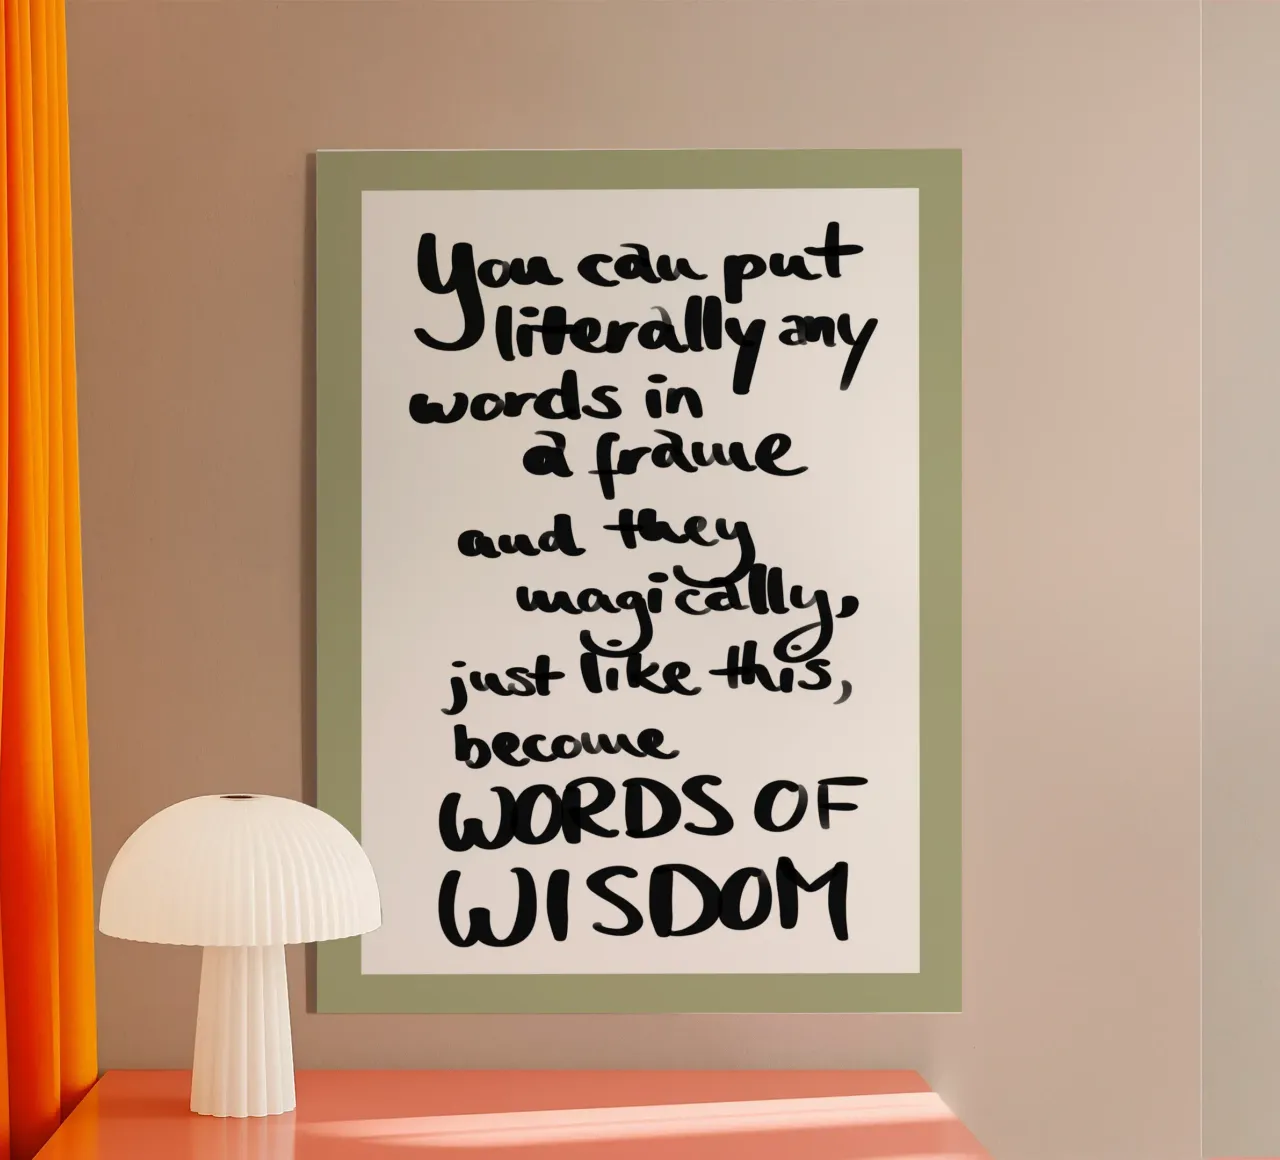 You can put
literally any
words in
a frame
and they
magically,
just like this,
become
WORDS OF
WISDOM